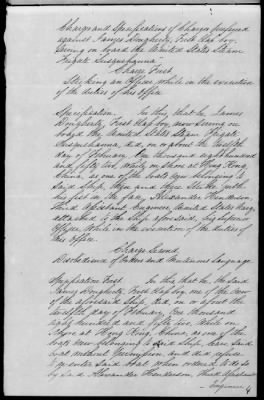 Charges and Specifications of Charges preferred
against James Dougherty, First Class boy
serving on board the United States Steam
Frigate Susquehanna.
Charge First
Striking an Officer while in the execution
of the duties of his office.
Specification. In this that he, James
Dougherty, First Class boy, now serving on
board the United States Steam Frigate
Susquehanna, did, on or about the twelfth
day of February, One thousand eight hundred
and fifty two, while on shore at Hong Kong,
China, in one of the boats belonging to
said ship, then and there strike with
his fist in the face, Alexander Henderson
Third Assistant Engineer United States Navy,
attached to the Ship aforesaid, his Superior
Officer, while in the execution of the duties of
his Office.
Charge Second
Disobedience of Orders and Mutinous Language
Specification First In this that he, the said
James Dougherty First Class boy, one of the crew
of the aforesaid Ship, did, on or about the
twelfth day of February, One thousand
eight hundred and fifty two, while on
shore at Hong Kong, China, in one of the
boats belonging to said ship, leave said
boat without permission and did refuse
to re-enter said boat when ordered to do so
by said Alexander Henderson, Third Assistant
Engineer
4